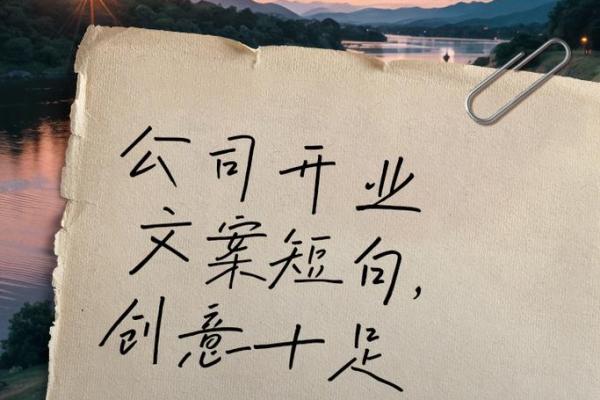 公司开业
文案短句,
创意十足